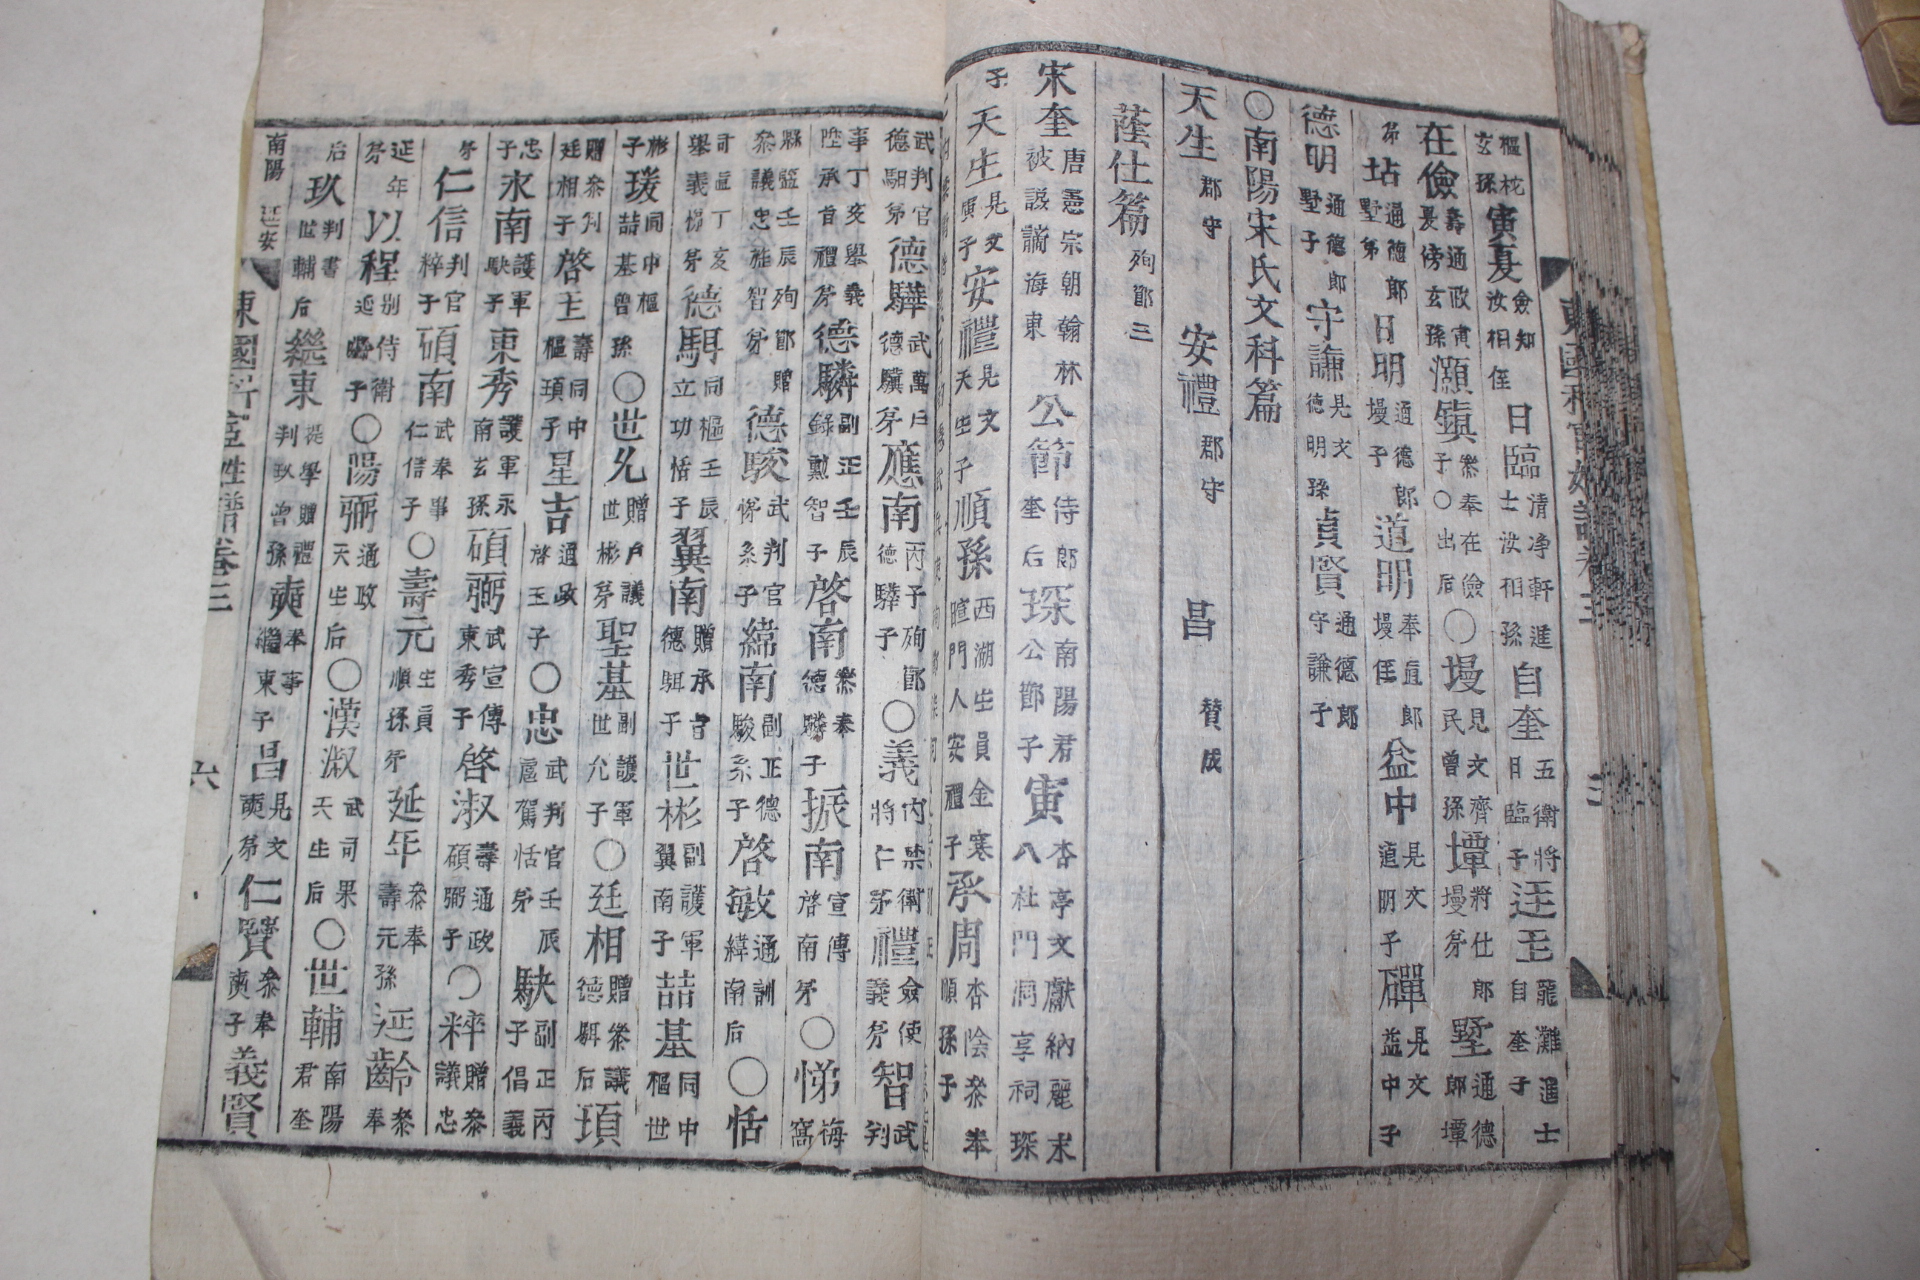 樞枕 玄孫 寅夏 僉知 汝相侄 日臨 清淨軒進士 汝相孫 自奎 五衛將 日臨子 迋王 龍灘進士 自奎子
在儉 壽通政寅夏傍玄孫 灝鎮 叅奉在儉子 ○出后 ○墁 見文齊民曾孫 墰 將仕郎墁弟 墅 通德郎墰
弟 坫 通德郎墅弟 日明 通德郎墁子 道明 奉直郎墁侄 益中 見文道明子 磾 見文益中子
德明 通德郎墅子 守謙 見文德明孫 貞賢 通德郎守謙子
○南陽宋氏文科篇
天生 郡守 安禮 郡守 昌 贊成
蔭仕篇 殉節三
宋奎 唐憲宗朝翰林被謫海東 公節 侍郎奎后 琛 南陽君公節子 寅 杏亭文獻納麗末八杜門洞享祠琛
子 天生 見文寅子 安禮 見文天生子 順孫 西湖生員金寒暄門人安禮子 承周 杏陰叅奉順孫子
武判官德駰弟 德驊 武萬戶德驥弟 應南 丙子殉節德驊子 ○義 內禁衛將仁弟 禮 僉使義弟 智 武判
事丁亥舉義陞承旨禮弟 德驎 副正壬辰錄勳智子 啓南 叅奉德驎子 振南 宣傳啓南弟 ○悌 梅窩
縣監壬辰殉節贈叅議忠旌智弟 德駿 武判官悌系子 緯南 副正德駿系子 啓敏 通訓緯南后 ○恬
司直丁亥舉義悌弟 德駬 同樞壬辰立功恬子 翼南 贈承旨德駬子 世彬 副護軍翼南子 喆基 同中樞世
彬子 瑗 同中樞喆基曾孫 ○世允 贈戶議世彬弟 聖基 副護軍世允子 ○廷相 贈叅議德駬后 頊
贈叅判廷相子 啓圭 壽同中樞頊子 星吉 通政啓玉子 ○忠 武判官壬辰扈駕恬弟 駃 副正丙子倡義
忠子 永南 護軍駃子 東秀 護軍永南玄孫 碩弼 武宣傳東秀子 啓淑 壽通政碩弼子 ○粹 贈叅議忠
弟 仁信 判官粹子 碩南 武奉事仁信子 ○壽元 生員順孫弟 延年 叅奉壽元孫 延齡 叅奉
延年弟 以程 別侍衛延齡子 ○陽弼 通政天生后 ○漢淑 武司果天生后 ○世輔 南陽君奎
后 玖 判書世輔后 繼東 提學贈禮判玖曾孫 奭 奉事繼東子 昌 見文奭弟 仁賢 叅奉奭子 義賢
南陽 延安
東國科宦姓譜卷三
六